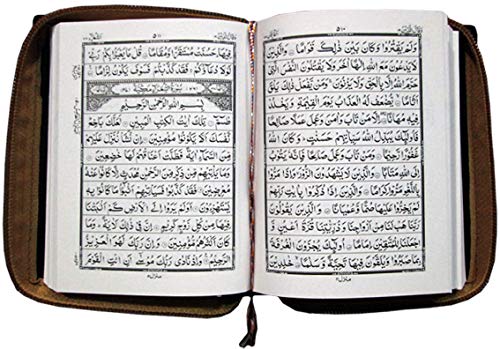 وَلَمْ يَقْتُرُوْا وَكَانَ بَيْنَ ذٰلِكَ قَوَامًا ۝ وَالَّذِيْنَ
لَا يَدْعُوْنَ مَعَ اللّٰهِ اِلٰهًا اٰخَرَ وَلَا يَقْتُلُوْنَ النَّفْسَ الَّتِيْ
حَرَّمَ اللّٰهُ اِلَّا بِالْحَقِّ وَلَا يَزْنُوْنَ ۚ وَمَنْ يَّفْعَلْ ذٰلِكَ يَلْقَ
اَثَامًا ۝ يُّضٰعَفْ لَهُ الْعَذَابُ يَوْمَ الْقِيٰمَةِ وَيَخْلُدْ فِيْهٖ
مُهَانًا ۝ اِلَّا مَنْ تَابَ وَاٰمَنَ وَعَمِلَ عَمَلًا صَالِحًا
فَاُولٰٓئِكَ يُبَدِّلُ اللّٰهُ سَيِّاٰتِهِمْ حَسَنٰتٍ ؕ وَكَانَ اللّٰهُ
غَفُوْرًا رَّحِيْمًا ۝ وَمَنْ تَابَ وَعَمِلَ صَالِحًا فَاِنَّهٗ يَتُوْبُ
اِلَى اللّٰهِ مَتَابًا ۝ وَالَّذِيْنَ لَا يَشْهَدُوْنَ الزُّوْرَ ۙ وَاِذَا مَرُّوْا
بِاللَّغْوِ مَرُّوْا كِرَامًا ۝ وَالَّذِيْنَ اِذَا ذُكِّرُوْا بِاٰيٰتِ رَبِّهِمْ
لَمْ يَخِرُّوْا عَلَيْهَا صُمًّا وَّعُمْيَانًا ۝ وَالَّذِيْنَ يَقُوْلُوْنَ
رَبَّنَا هَبْ لَنَا مِنْ اَزْوَاجِنَا وَذُرِّيّٰتِنَا قُرَّةَ اَعْيُنٍ وَّ
اجْعَلْنَا لِلْمُتَّقِيْنَ اِمَامًا ۝ اُولٰٓئِكَ يُجْزَوْنَ الْغُرْفَةَ
بِمَا صَبَرُوْا وَيُلَقَّوْنَ فِيْهَا تَحِيَّةً وَّسَلٰمًا ۝ خٰلِدِيْنَ
فِيْهَا ؕ حَسُنَتْ مُسْتَقَرًّا وَّمُقَامًا ۝ قُلْ مَا يَعْبَؤُا بِكُمْ رَبِّيْ
لَوْلَا دُعَآؤُكُمْ ۚ فَقَدْ كَذَّبْتُمْ فَسَوْفَ يَكُوْنُ لِزَامًا ۝
بِسْمِ اللّٰهِ الرَّحْمٰنِ الرَّحِيْمِ
طٰسٓمّٓ ۝ تِلْكَ اٰيٰتُ الْكِتٰبِ الْمُبِيْنِ ۝ لَعَلَّكَ بَاخِعٌ
نَّفْسَكَ اَلَّا يَكُوْنُوْا مُؤْمِنِيْنَ ۝ اِنْ نَّشَاْ نُنَزِّلْ عَلَيْهِمْ
مِّنَ السَّمَآءِ اٰيَةً فَظَلَّتْ اَعْنَاقُهُمْ لَهَا خٰضِعِيْنَ ۝
وَمَا يَاْتِيْهِمْ مِّنْ ذِكْرٍ مِّنَ الرَّحْمٰنِ مُحْدَثٍ اِلَّا كَانُوْا عَنْهُ
مُعْرِضِيْنَ ۝ فَقَدْ كَذَّبُوْا فَسَيَاْتِيْهِمْ اَنْۢبٰٓؤُا مَا كَانُوْا بِهٖ
يَسْتَهْزِءُوْنَ ۝ اَوَلَمْ يَرَوْا اِلَى الْاَرْضِ كَمْ اَنْۢبَتْنَا فِيْهَا
مِنْ كُلِّ زَوْجٍ كَرِيْمٍ ۝ اِنَّ فِيْ ذٰلِكَ لَاٰيَةً ؕ وَمَا
كَانَ اَكْثَرُهُمْ مُّؤْمِنِيْنَ ۝ وَاِنَّ رَبَّكَ لَهُوَ الْعَزِيْزُ
الرَّحِيْمُ ۝ وَاِذْ نَادٰى رَبُّكَ مُوْسٰٓى اَنِ ائْتِ الْقَوْمَ